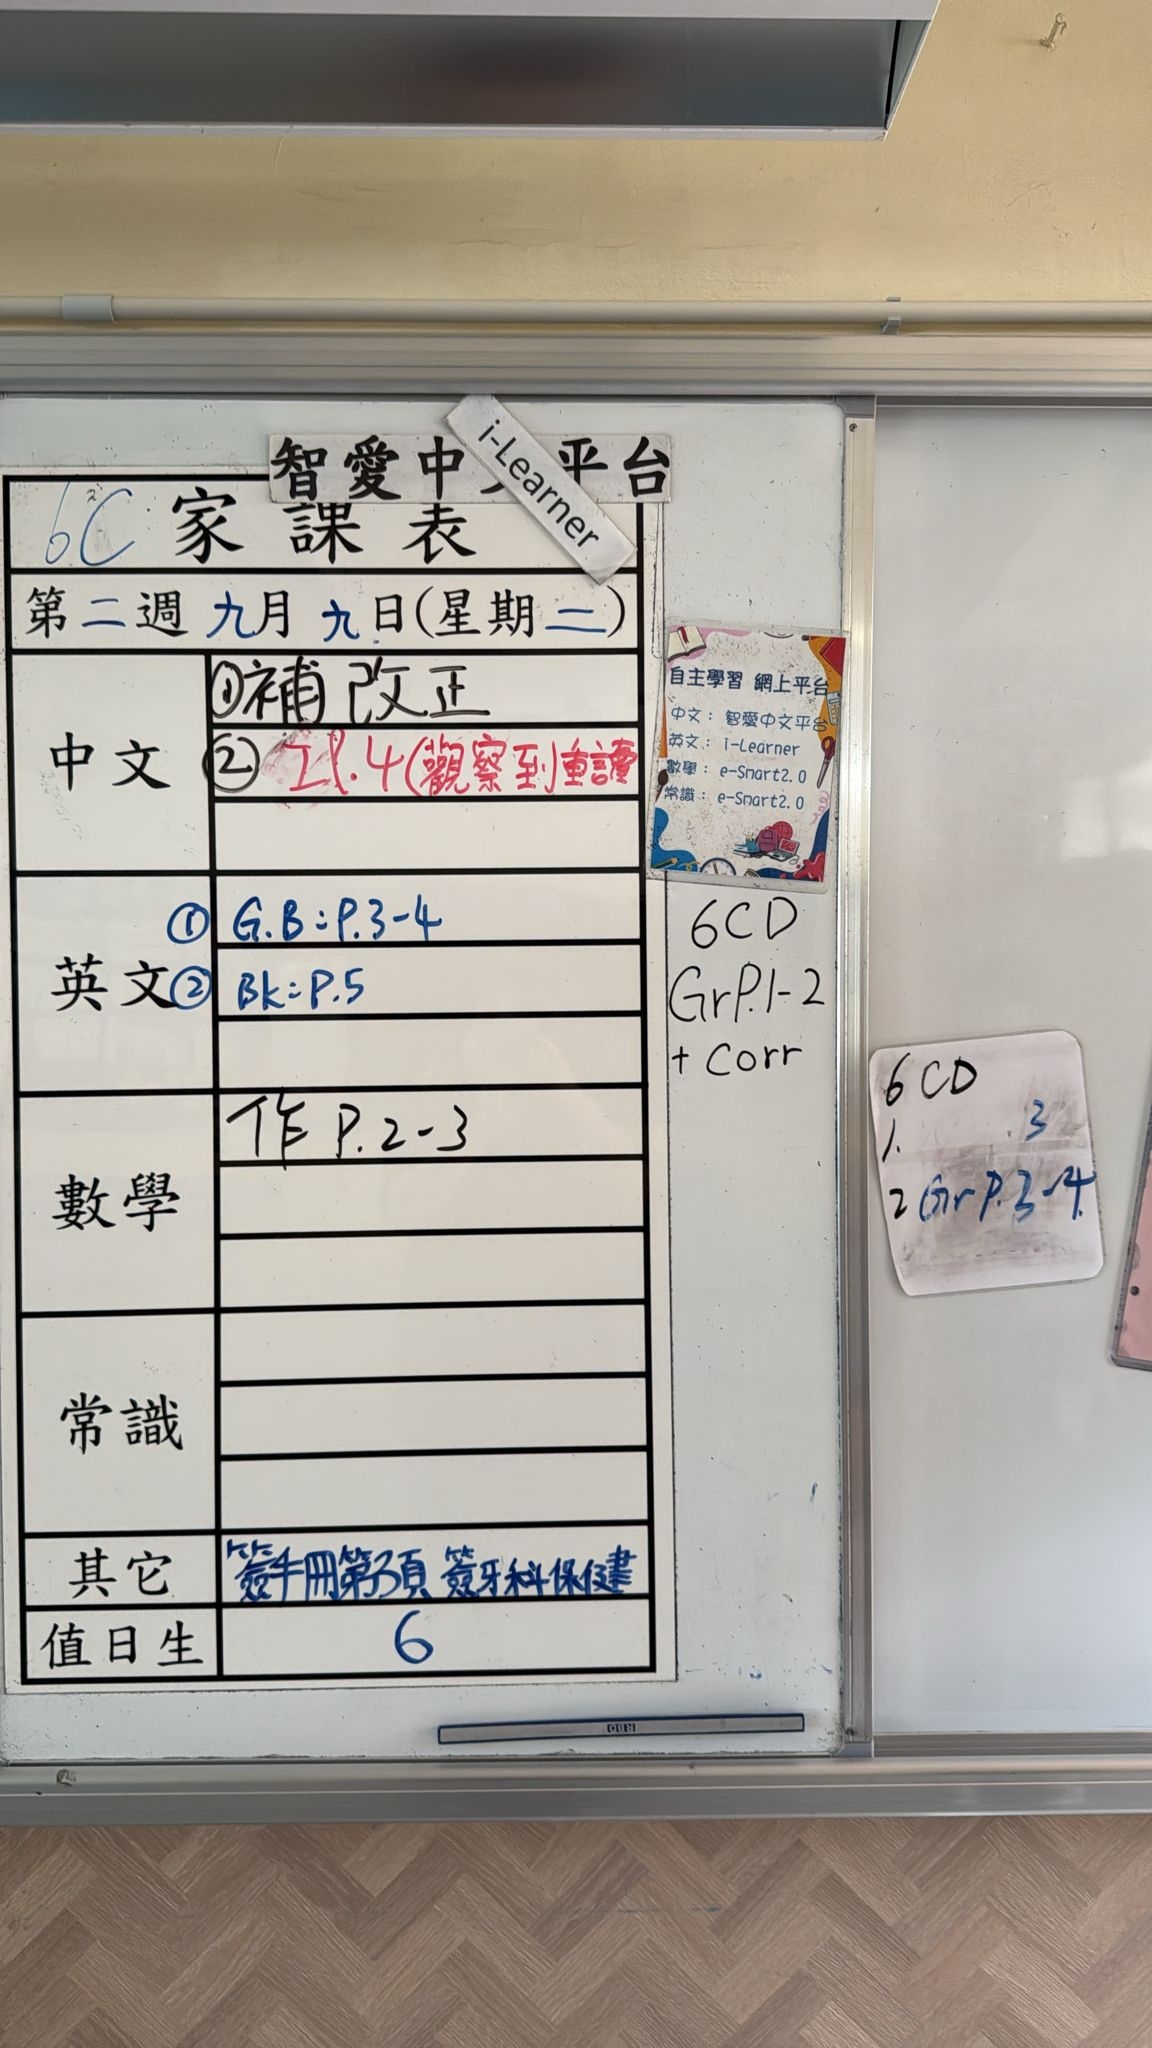 智愛中文平台
i-Learner
6C 家課表
第二週 九月 九日(星期二)
中文
①補改正
② 工P.4(觀察到重讀
英文
① G.B=P.3-4
② Bk=P.5
數學
作 P.2-3
常識
其它
簽手冊第3頁 簽牙科保健書
值日生
6
自主學習 網上平台
中文： 智愛中文平台
英文： i-Learner
數學： e-Smart2.0
常識： e-Smart2.0
6CD
GrP.1-2
+ corr
6 CD
1. .3
2 Gr P.3-4